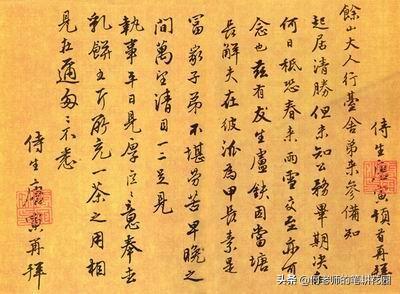 侍生唐寅頓首再拜
餘山大人行臺舍弟來參備知
起居清勝但未知公務畢期決在
何日秖恐春來雨雪交至亦可
念也茲有友生盧鈇因當塘
長解夫在彼派為甲長素是
富家子弟不堪勞苦早晚之
間萬望清目一二足見
執事平日見厚之意奉去
乳餅五斤所充一茶之用相
見在邇匆匆不悉
侍生唐寅再拜
头条@付老师的笔耕花园